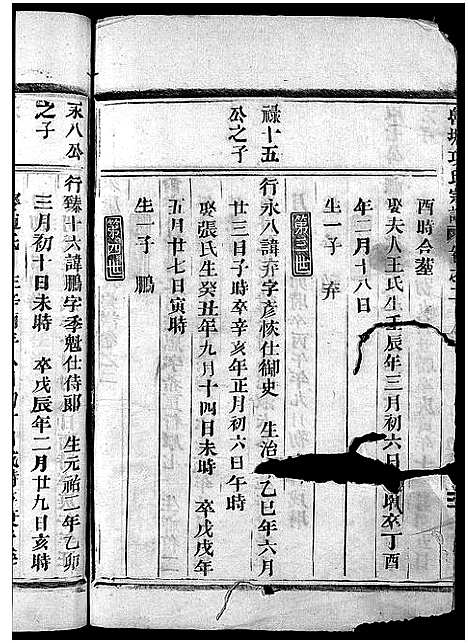 酉時合塟
娶夫人王氏生壬辰年三月初六日
卒丁酉
年二月十八日
生一子弃
第三世
祿十五
公之子
行永八諱弃字彥恢仕御史　生治
乙巳年六月
廿三日子時卒辛亥年正月初六日午時
娶張氏生癸丑年九月十四日未時　卒戊戌年
五月廿七日寅時
生一子鵬
第四世
永八公
之子
行臻十六諱鵬字季魁仕侍郎　生元祐二年乙卯
三月初十日未時　卒戊辰年二月廿九日亥時